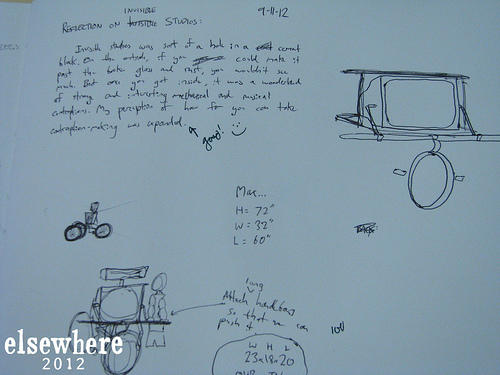 INVISIBLE
9-11-12
REFLECTION ON STUDIOS:
Invisible studios was sort of a hole in a cement
block. On the outside, if you could make it
past the broken glass and rust, you wouldn't see
much. But once you got inside, it was a wonderland
of strange and interesting mechanical and musical
contraptions. My perception of how far you can take
contraption-making was expanded.
yay!
Max...
H = 72"
W = 32"
L = 60"
long
Attach handlebars
so that we can
push it
100
W H L
23x18x20
OUR
elsewhere
2012